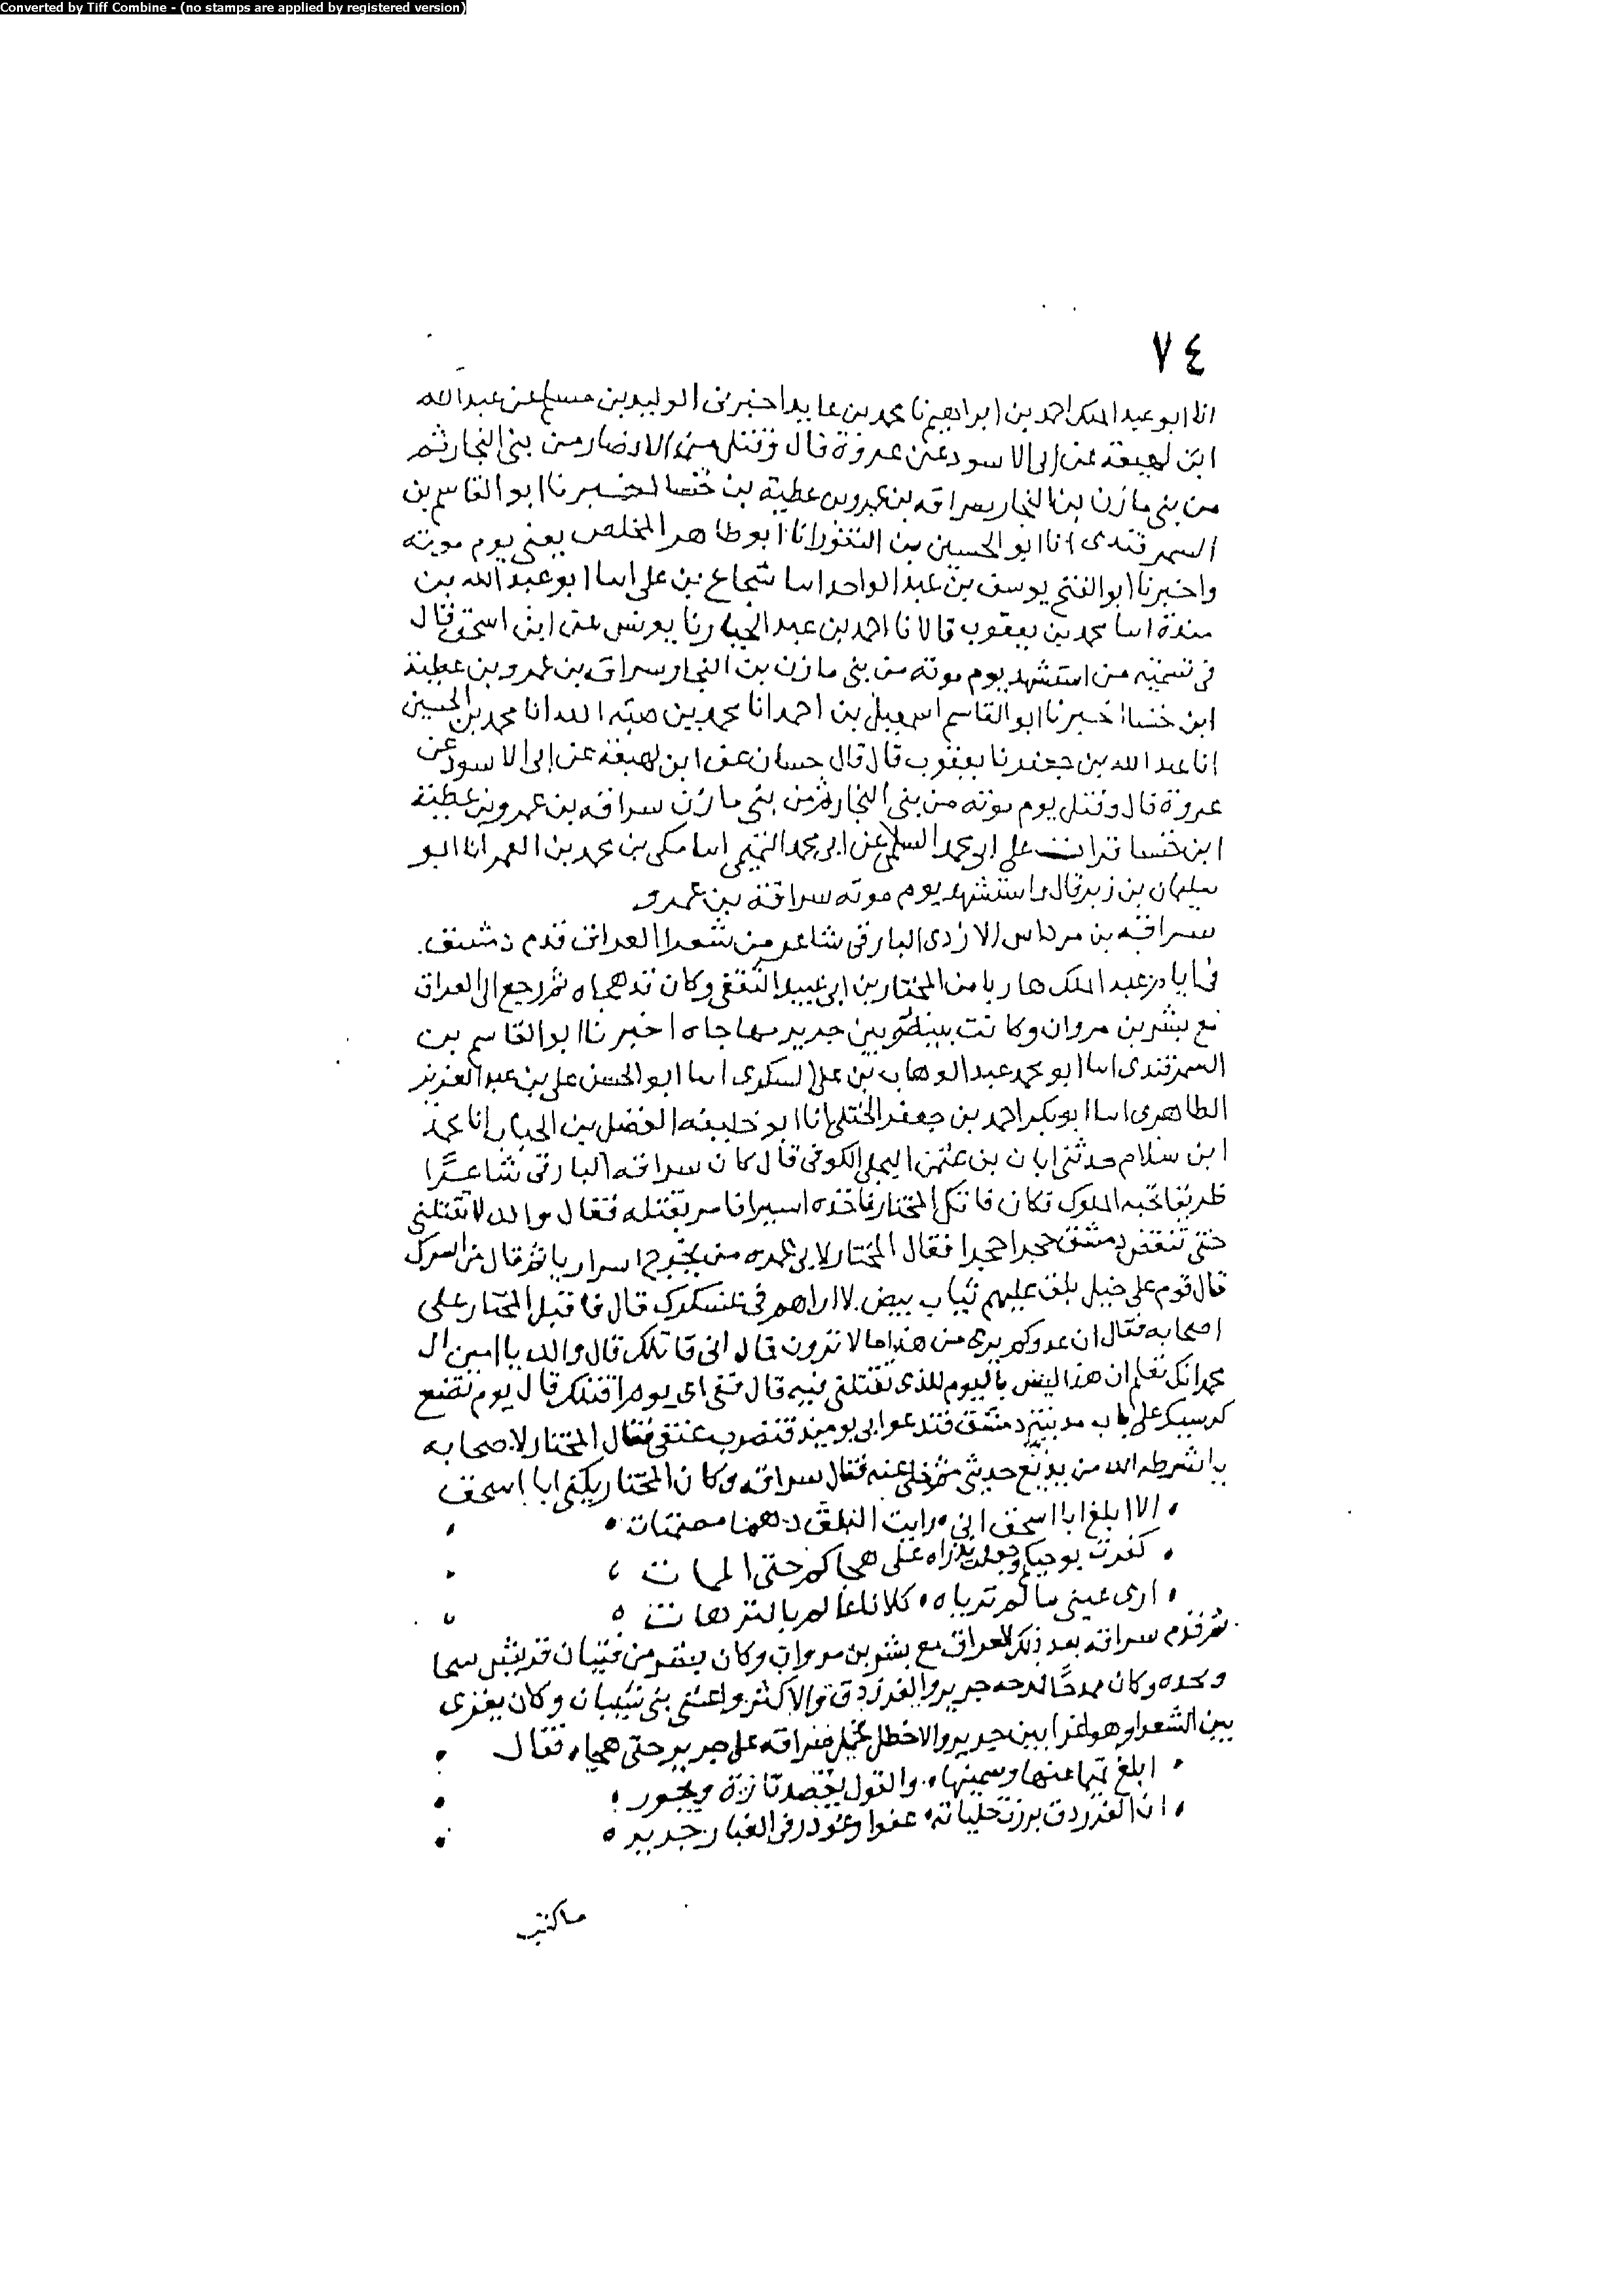 Converted by Tiff Combine - (no stamps are applied by registered version)
٧٤
انا ابو عبد الملك احمد بن ابراهيم نا محمد بن عايد اخبرنى الوليد بن مسلم عن عبد الله
ابن لهيعة عن ابى الاسود عن عروة قال وقتل من الانصار من بنى النجار ثم
من بنى مازن بن النجار سراقه بن عمرو بن عطية بن خنسا اخبرنا ابو القاسم بن
السمرقندى انا ابو الحسين بن النقور انا ابو طاهر المخلص يعنى يوم موته
واخبرنا ابو الفتح يوسف بن عبد الواحد اسا شجاع بن على اسا ابو عبد الله بن
مندة اسا محمد بن يعقوب قالا نا احمد بن عبد الجبار نا يونس عن ابن اسحق قال
فى تسمية من استشهد يوم موته من بنى مازن بن النجار سراقه بن عمرو بن عطية
ابن خنسا اخبرنا ابو القاسم اسمعيل بن احمد انا محمد بن هبة الله انا محمد بن الحسين
انا عبد الله بن جعفر نا يعقوب قال قال حسان عن ابن لهيعة عن ابى الاسود عن
عروة قال وقتل يوم موته من بنى النجار ثم من بنى مازن سراقه بن عمرو بن عطية
ابن خنسا قرات على ابى محمد السلمى عن ابى محمد التميمى اسا مكى بن محمد بن الغمر انا ابو
سليمان بن زبر قال واستشهد يوم موته سراقة بن عمرو
سراقه بن مرداس الازدى البارقى شاعر من شعرا العراق قدم دمشق
فى ايام عبد الملك هاربا من المختار بن ابى عبيد الثقفى وكان قد هجاه ثم رجع الى العراق
مع بشر بن مروان وكانت بينه وبين جرير مهاجاه اخبرنا ابو القاسم بن
السمرقندى اسا ابو محمد عبد الوهاب بن على السكرى اسا ابو الحسن على بن عبد العزيز
الطاهرى اسا ابو بكر احمد بن جعفر الختلى انا ابو خليفه الفضل بن الحباب انا محمد
ابن سلام حدثنى ابان بن عثمن البجلى الكوفى قال كان سراقه البارقى شاعرًا
ظريفا تحبه الملوك وكان قاتل المختار فاخذه اسيرا فامر بقتله فقال والله لا تقتلنى
حتى تنقض دمشق حجرا حجرا فقال المختار لابى عمره من يخرج اسرارنا ثم قال من اسرك
قال قوم على خيل بلق عليهم ثياب بيض لا اراهم فى عسكرك قال فاقبل المختار على
اصحابه فقال ان عدوكم يرى من هذا ما لا ترون قال انى قاتلك قال والله يا امين ال
محمد انك تعلم ان هذا ليس باليوم الذى تقتلنى فيه قال ففى اى يوم اقتلك قال يوم تضع
كرسيك على باب مدينة دمشق فتدعوا بى يوميذ فتضرب عنقى فقال المختار لاصحابه
يا شرطه الله من يذيع حديثى ثم خلى عنه فقال سراقه وكان المختار يكنى ابا اسحق
الا ابلغ ابا اسحق انى رايت البلق دهما مصمتات
كفرت بوحيكم وجعلت نذرا على هجاكم حتى الممات
ارى عينى ما لم ترياه كلانا عالم بالترهات
ثم قدم سراقه بعد ذلك العراق مع بشر بن مروان وكان بشر من فتيان قريش سخا
ونجده وكان ممدحًا فمدحه جرير والفرزدق والاخطل واعشى بنى شيبان وكان يغرى
بين الشعرا وهو اغرا بين جرير والاخطل فحمل سراقه على جرير حتى هجاه فقال
ابلغ تميما غثها وسمينها والقول يقصد تازة ويجور
ان الفرزدق برزت حلباته عفوا وغودر فى الغبار جرير
ما كنت